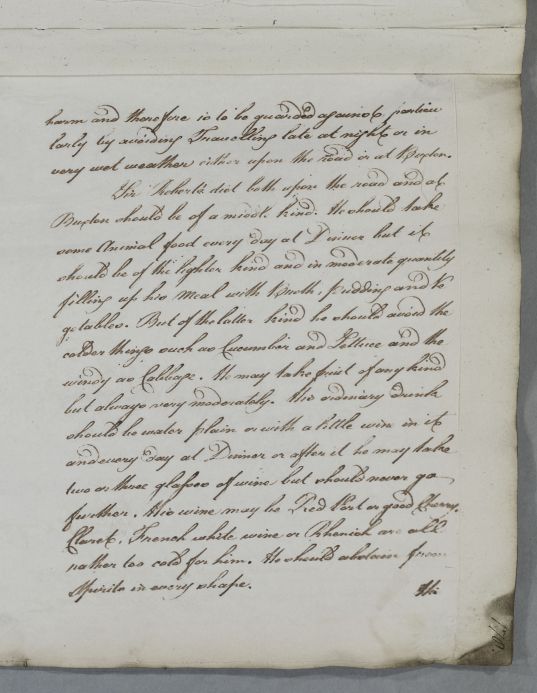 harm and therefore is to be guarded against particu
larly by avoiding Travelling late at night or in
very wet weather either upon the road or at Buxton.
Sir Robert's diet both upon the road and at
Buxton should be of a middle kind. He should take
some Animal food every day at Dinner but it
should be of the lighter kind and in moderate quantity
filling up his meal with Broth, Pudding and Ve
getables. But of the latter kind he should avoid the
colder things such as Cucumber and Lettuce and the
windy as Cabbage. He may take fruit of any kind
but always very moderately. His ordinary drink
should be water plain or with a little wine in it
and every day at Dinner or after it he may take
two or three glasses of wine but should never go
further. His wine may be Red Port or good Cherry.
Claret, French white wine or Rhenish are all
rather too cold for him. He should abstain from
Spirits in every shape.